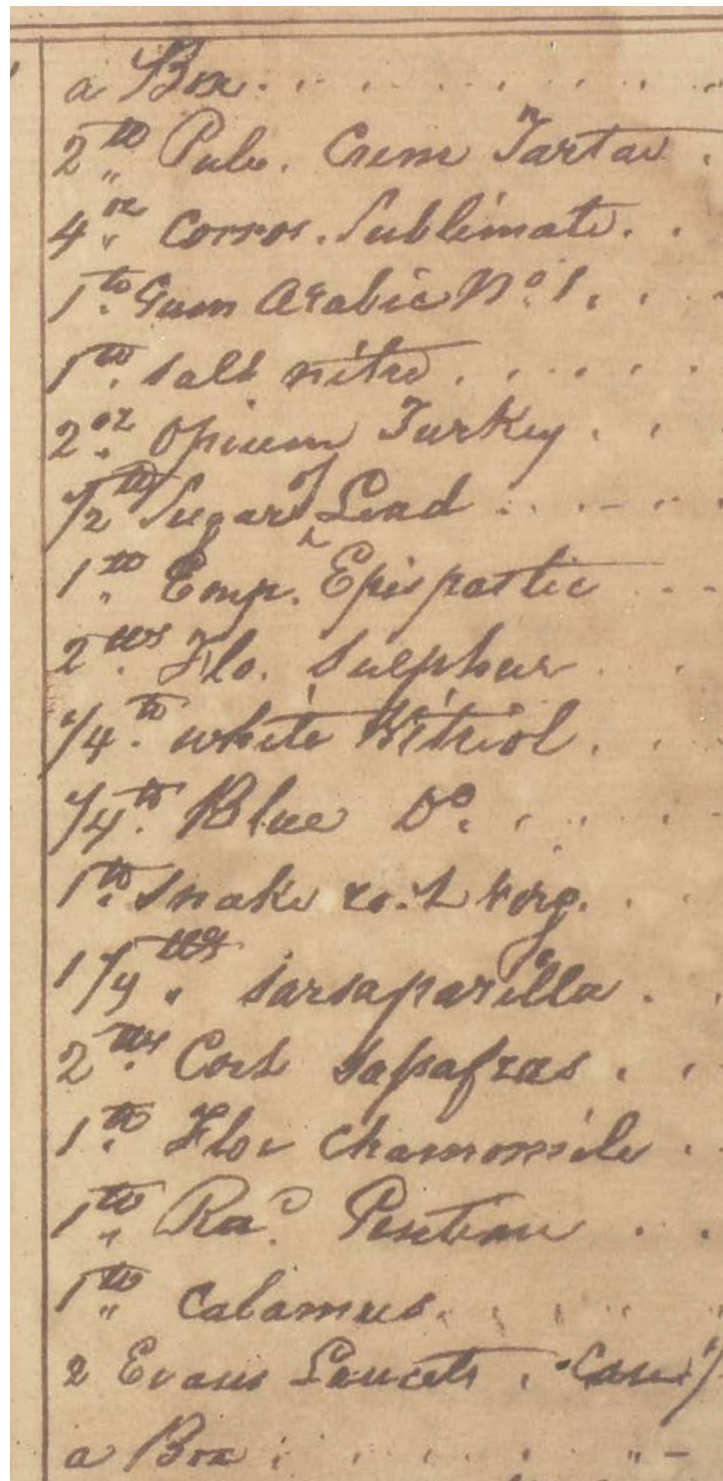 a Box
2 lb Pulv. Crem Tartar
4 oz Corros. Sublimate
1 lb Gum Arabic No 1
1 lb Salt nitre
2 oz Opium Turkey
1/2 lb Sugar of Lead
1 lb Emp. Epispastic
2 lbs Flo. Sulphur
1/4 lb white Vitriol
1/4 lb Blue Do.
1 lb Snake root Virg.
1/4 lbs Sarsaparilla
2 lbs Cort Sassafras
1 lb Flor Chamomile
1 lb Rad
1 lb Calamus
2 Evans Lancets . Case
a Box